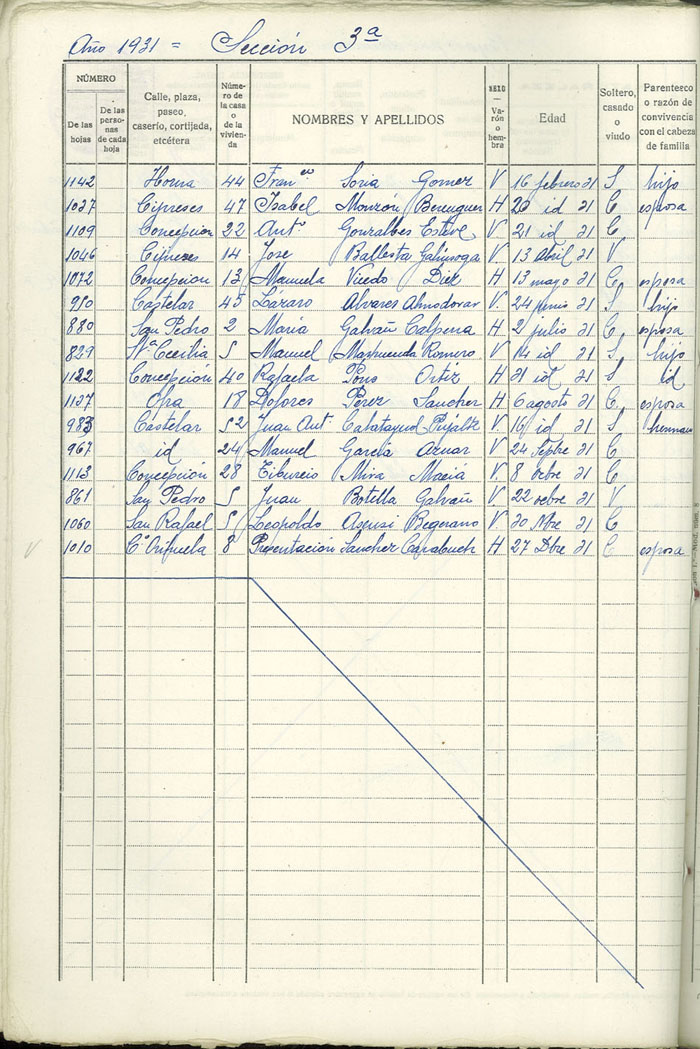 Año 1931 = Sección 3ª
NÚMERO
De las hojas
De las personas de cada hoja
Calle, plaza, paseo, caserío, cortijada, etcétera
Número de la casa o de la vivienda
NOMBRES Y APELLIDOS
SEXO — Varón o hembra
Edad
Soltero, casado o viudo
Parentesco o razón de convivencia con el cabeza de familia
1142 Horna 44 Fran.co Soria Gomez V 16 febrero 31 S hijo
1037 Cipreses 47 Isabel Monzón Berenguer H 20 id 31 C esposa
1109 Concepcion 22 Antº Gonzalbes Esteve V 21 id 31 C
1046 Cipreses 14 Jose Ballesta Galinsoga V 13 abril 31 V
1072 Concepcion 13 Manuela Viedo Diez H 13 mayo 31 C esposa
910 Castelar 45 Lázaro Alvares Almodovar V 24 junio 31 S hijo
880 San Pedro 2 María Galvañ Calpena H 2 julio 31 C esposa
829 Stª Cecilia S Manuel Romero V 14 id 31 S hijo
1122 Concepción 40 Rafaela Pons Ortiz H 31 id 31 S id
1137 18 Dolores Perez Sanchez H 6 agosto 31 C esposa
983 Castelar 52 Juan Ant. Calatayud V 16 id 31 S
967 id 24 Manuel Garcia Aznar V 24 Sepbre 31 C
1113 Concepción 28 Tiburcio Mira Maciá V 8 ocbre 31 C
861 San Pedro S Juan Botella Galvañ V 22 ocbre 31 V
1060 San Rafael S Leopoldo Asensi V 30 Nbre 31 C
1010 Cº Orihuela 8 Presentación Sanchez H 27 Dbre 31 C esposa